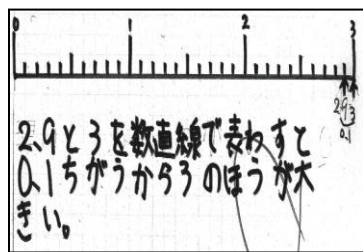 0 1 2 3
2.9 3
0.1
2.9と3を数直線で表わすと
0.1ちがうから3のほうが大
きい。